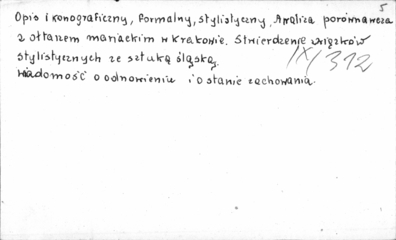 5
Opis ikonograficzny, formalny, stylistyczny. Analiza porównawcza
z ołtarzem mariackim w Krakowie. Stwierdzenie związków
stylistycznych ze sztuką śląską.
IX/312
Wiadomość o odnowieniu i o stanie zachowania.